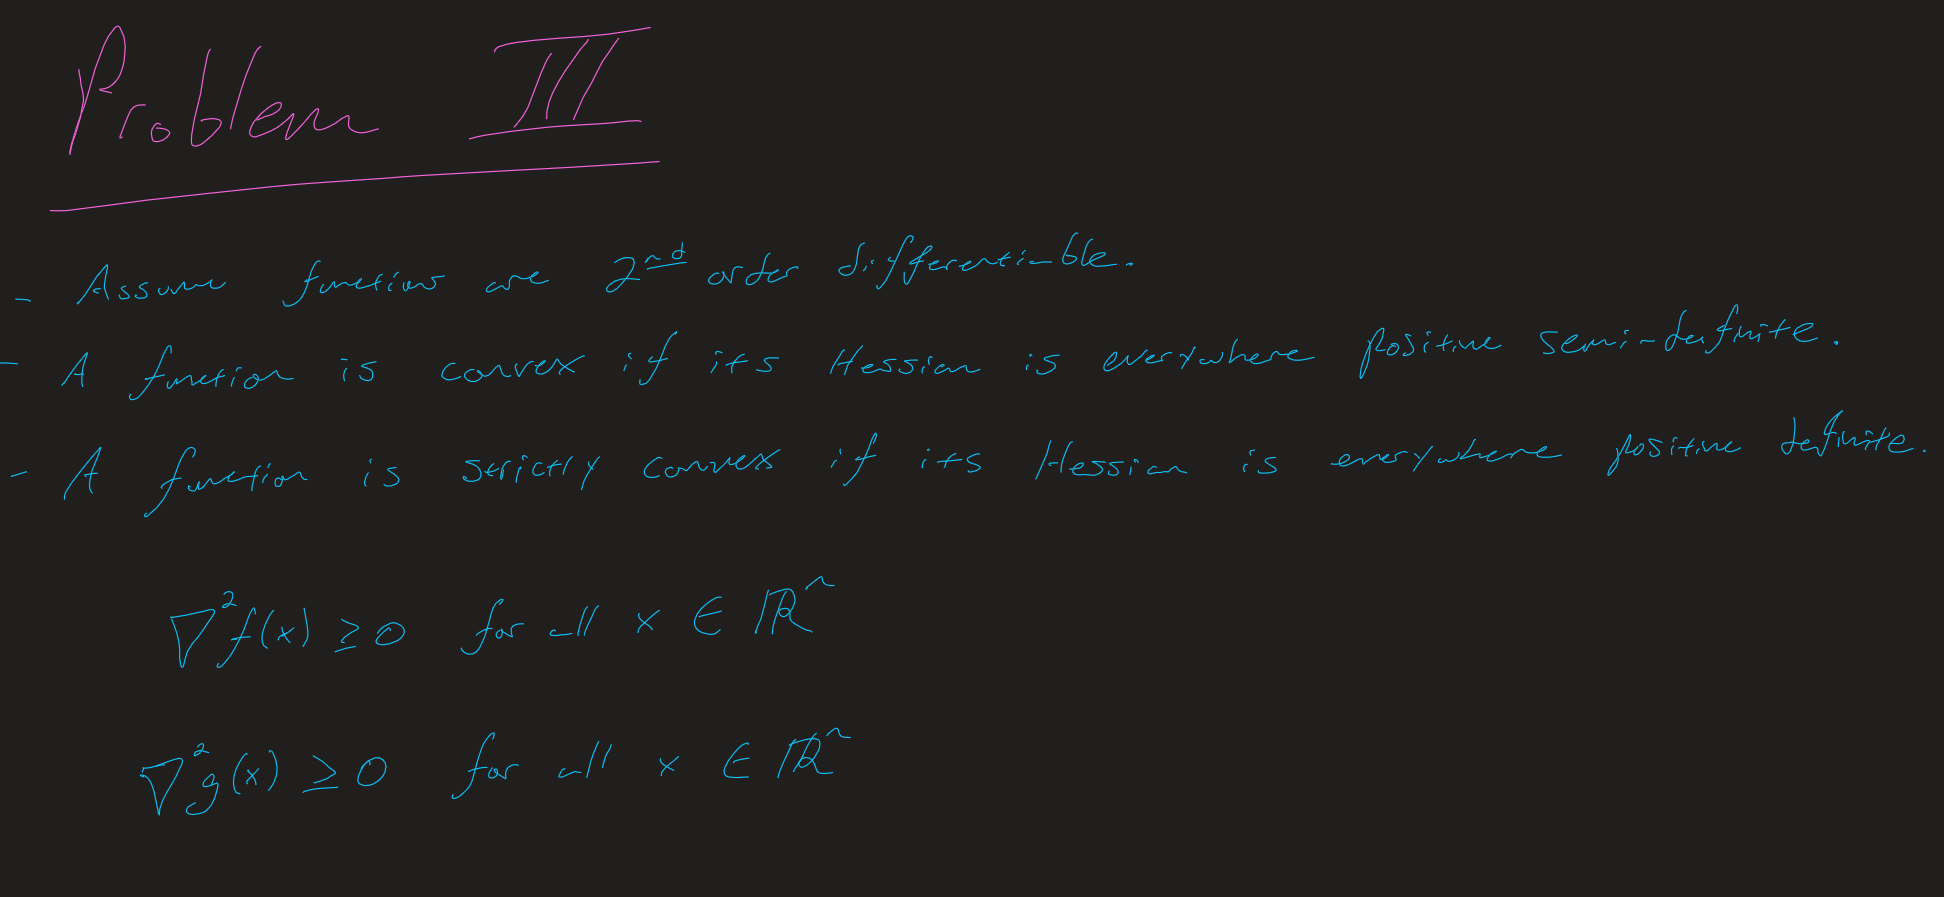 Problem III
- Assume functions are 2nd order differentiable.
- A function is convex if its Hessian is everywhere positive semi-definite.
- A function is strictly convex if its Hessian is everywhere positive definite.
∇²f(x) ≥ 0 for all x ∈ ℝⁿ
∇²g(x) ≥ 0 for all x ∈ ℝⁿ